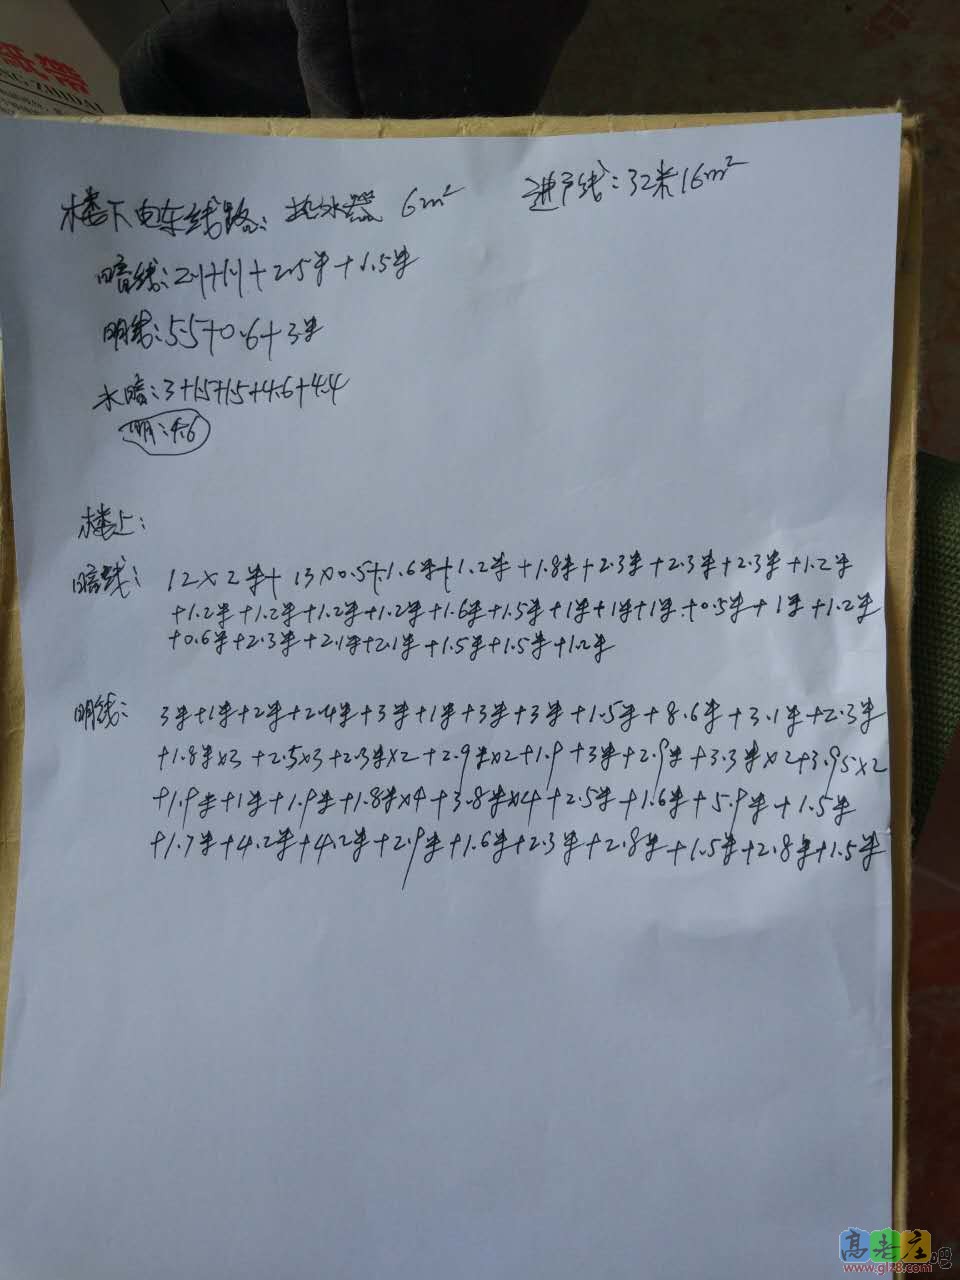 纸带
NG ZHIDAI
楼下电车线路: 热水器 6m² 进户线:32米16m²
暗线:2.1+1.1+2.5米+1.5米
明线:5.5+0.6+3米
水暗:3+1.5+1.5+4.6+4.4
明:4.6
楼上:
暗线: 12×2米+13×0.5+1.6米+1.2米+1.8米+2.3米+2.3米+2.3米+1.2米
+1.2米+1.2米+1.2米+1.2米+1.6米+1.5米+1米+1米+1米+0.5米+1米+1.2米
+0.6米+2.3米+2.1米+2.1米+1.5米+1.5米+1.2米
明线: 3米+1米+2米+2.4米+3米+1米+3米+3米+1.5米+8.6米+3.1米+2.3米
+1.8米×3+2.5×3+2.3米×2+2.9米×2+1.9+3米+2.9米+3.3米×2+3.95×2
+1.9米+1米+1.9米+1.8米×4+3.8米×4+2.5米+1.6米+5.9米+1.5米
+1.7米+4.2米+4.2米+2.9米+1.6米+2.3米+2.8米+1.5米+2.8米+1.5米
高老庄吧
www.glz8.com